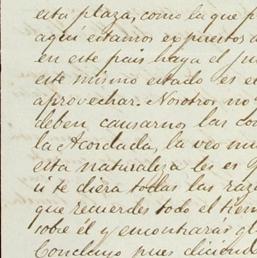 esta plaza, como la que p
aqui estamos expuestos a
en este pais haya el
este mismo estado es el
aprovechar. Nosotros no
deben causarnos las co
la Acordada, la veo mu
esta naturaleza les es q
si te diera todas las raz
que recuerdes todo el tiem
sobre él y encontraras
Concluyo pues diciendo